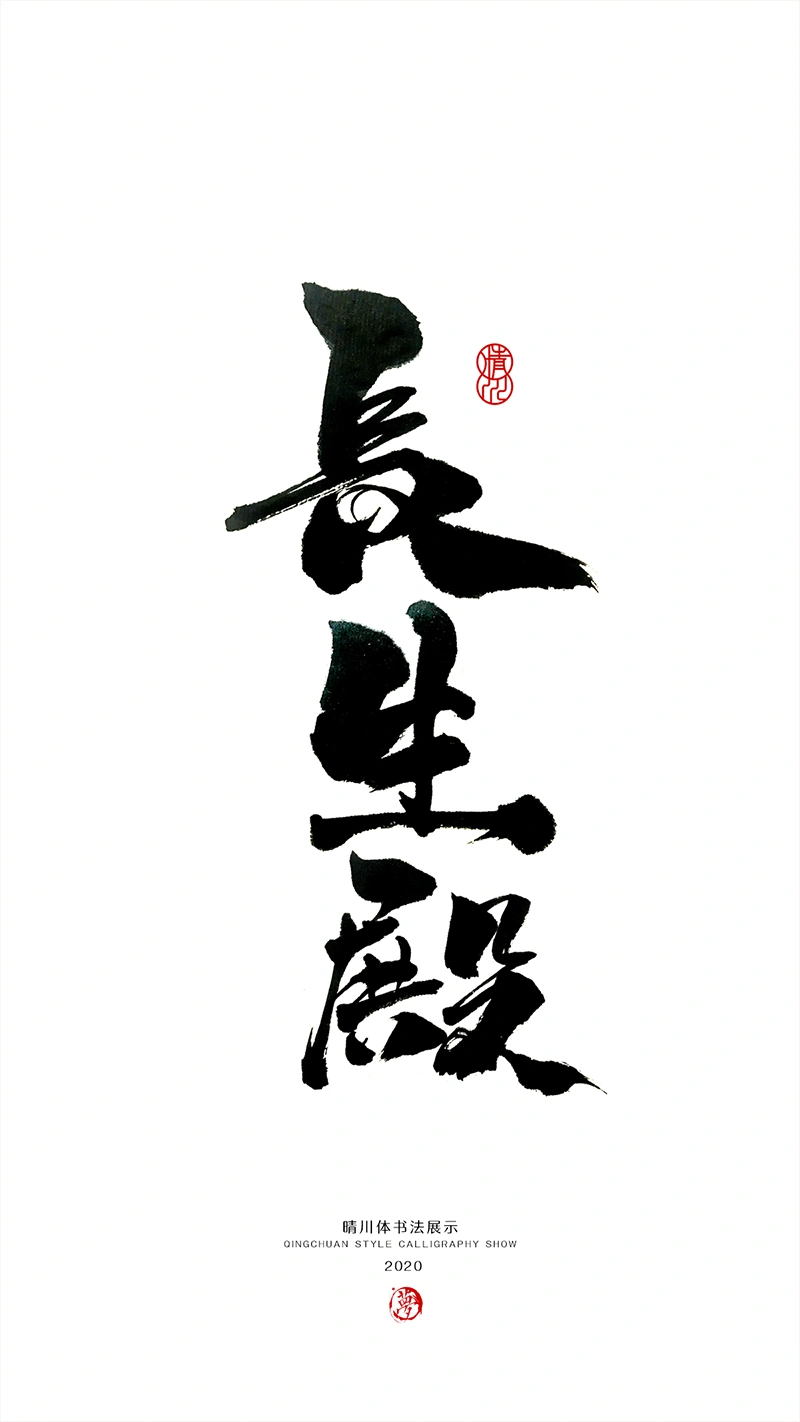 長生殿
晴川
晴川体书法展示
QINGCHUAN STYLE CALLIGRAPHY SHOW
2020
夢